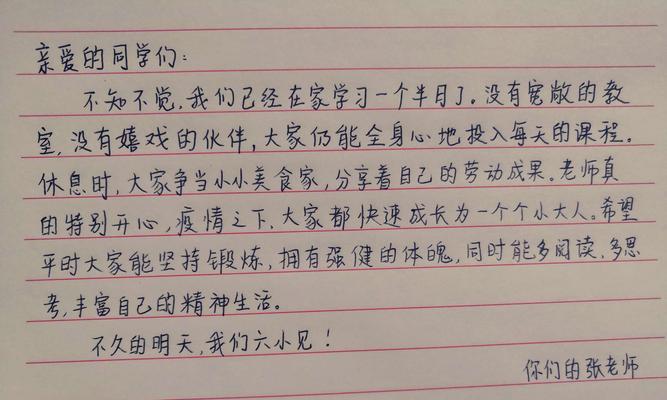 亲爱的同学们:
不知不觉,我们已经在家学习一个半月了。没有宽敞的教
室,没有嬉戏的伙伴,大家仍能全身心地投入每天的课程。
休息时,大家争当小小美食家,分享着自己的劳动成果。老师真
的特别开心,疫情之下,大家都快速成长为一个个小大人。希望
平时大家能坚持锻炼,拥有强健的体魄,同时能多阅读,多思
考,丰富自己的精神生活。
不久的明天,我们六小见!
你们的张老师